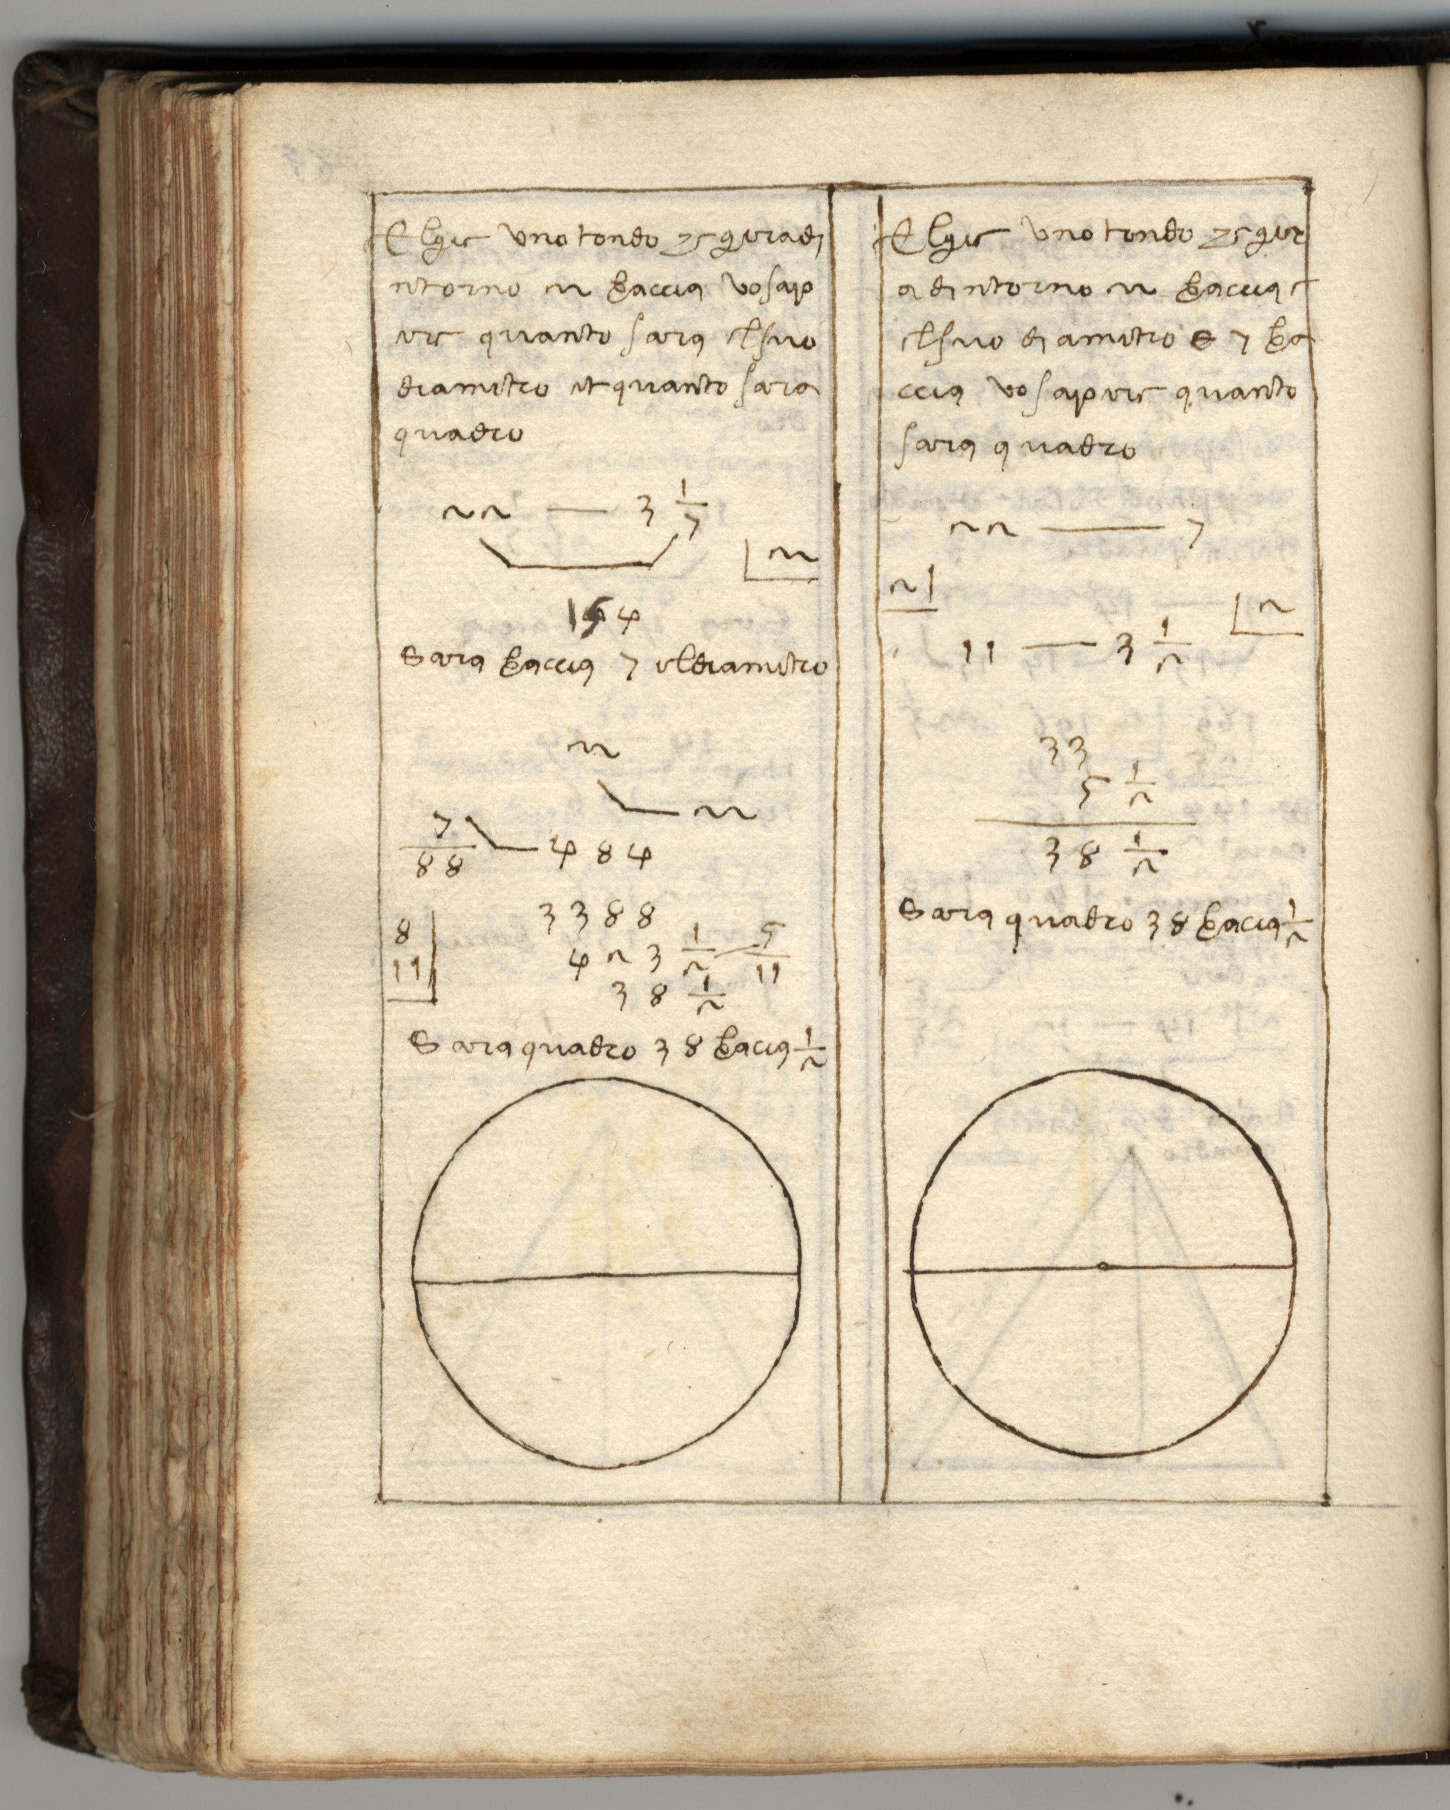 Elgie uno tondo ze gira di
ntorno 22 baccia vo sap
ere quanto sara el suo
diamitro et quanto sara
quadro
22 — 3 1/7
22
154
Sara baccia 7 el diamitro
22
22
7
88
484
3388
8
11
423 1/2 5/11
38 1/2
Sara quadro 38 bacia 1/2
Elgie uno tondo ze gir
a dintorno 22 baccia e
el suo diamitro e 7 ba
ccia vo sapere quanto
sara quadro
22 — 7
2
2
11 — 3 1/2
33
5 1/2
38 1/2
Sara quadro 38 bacia 1/2